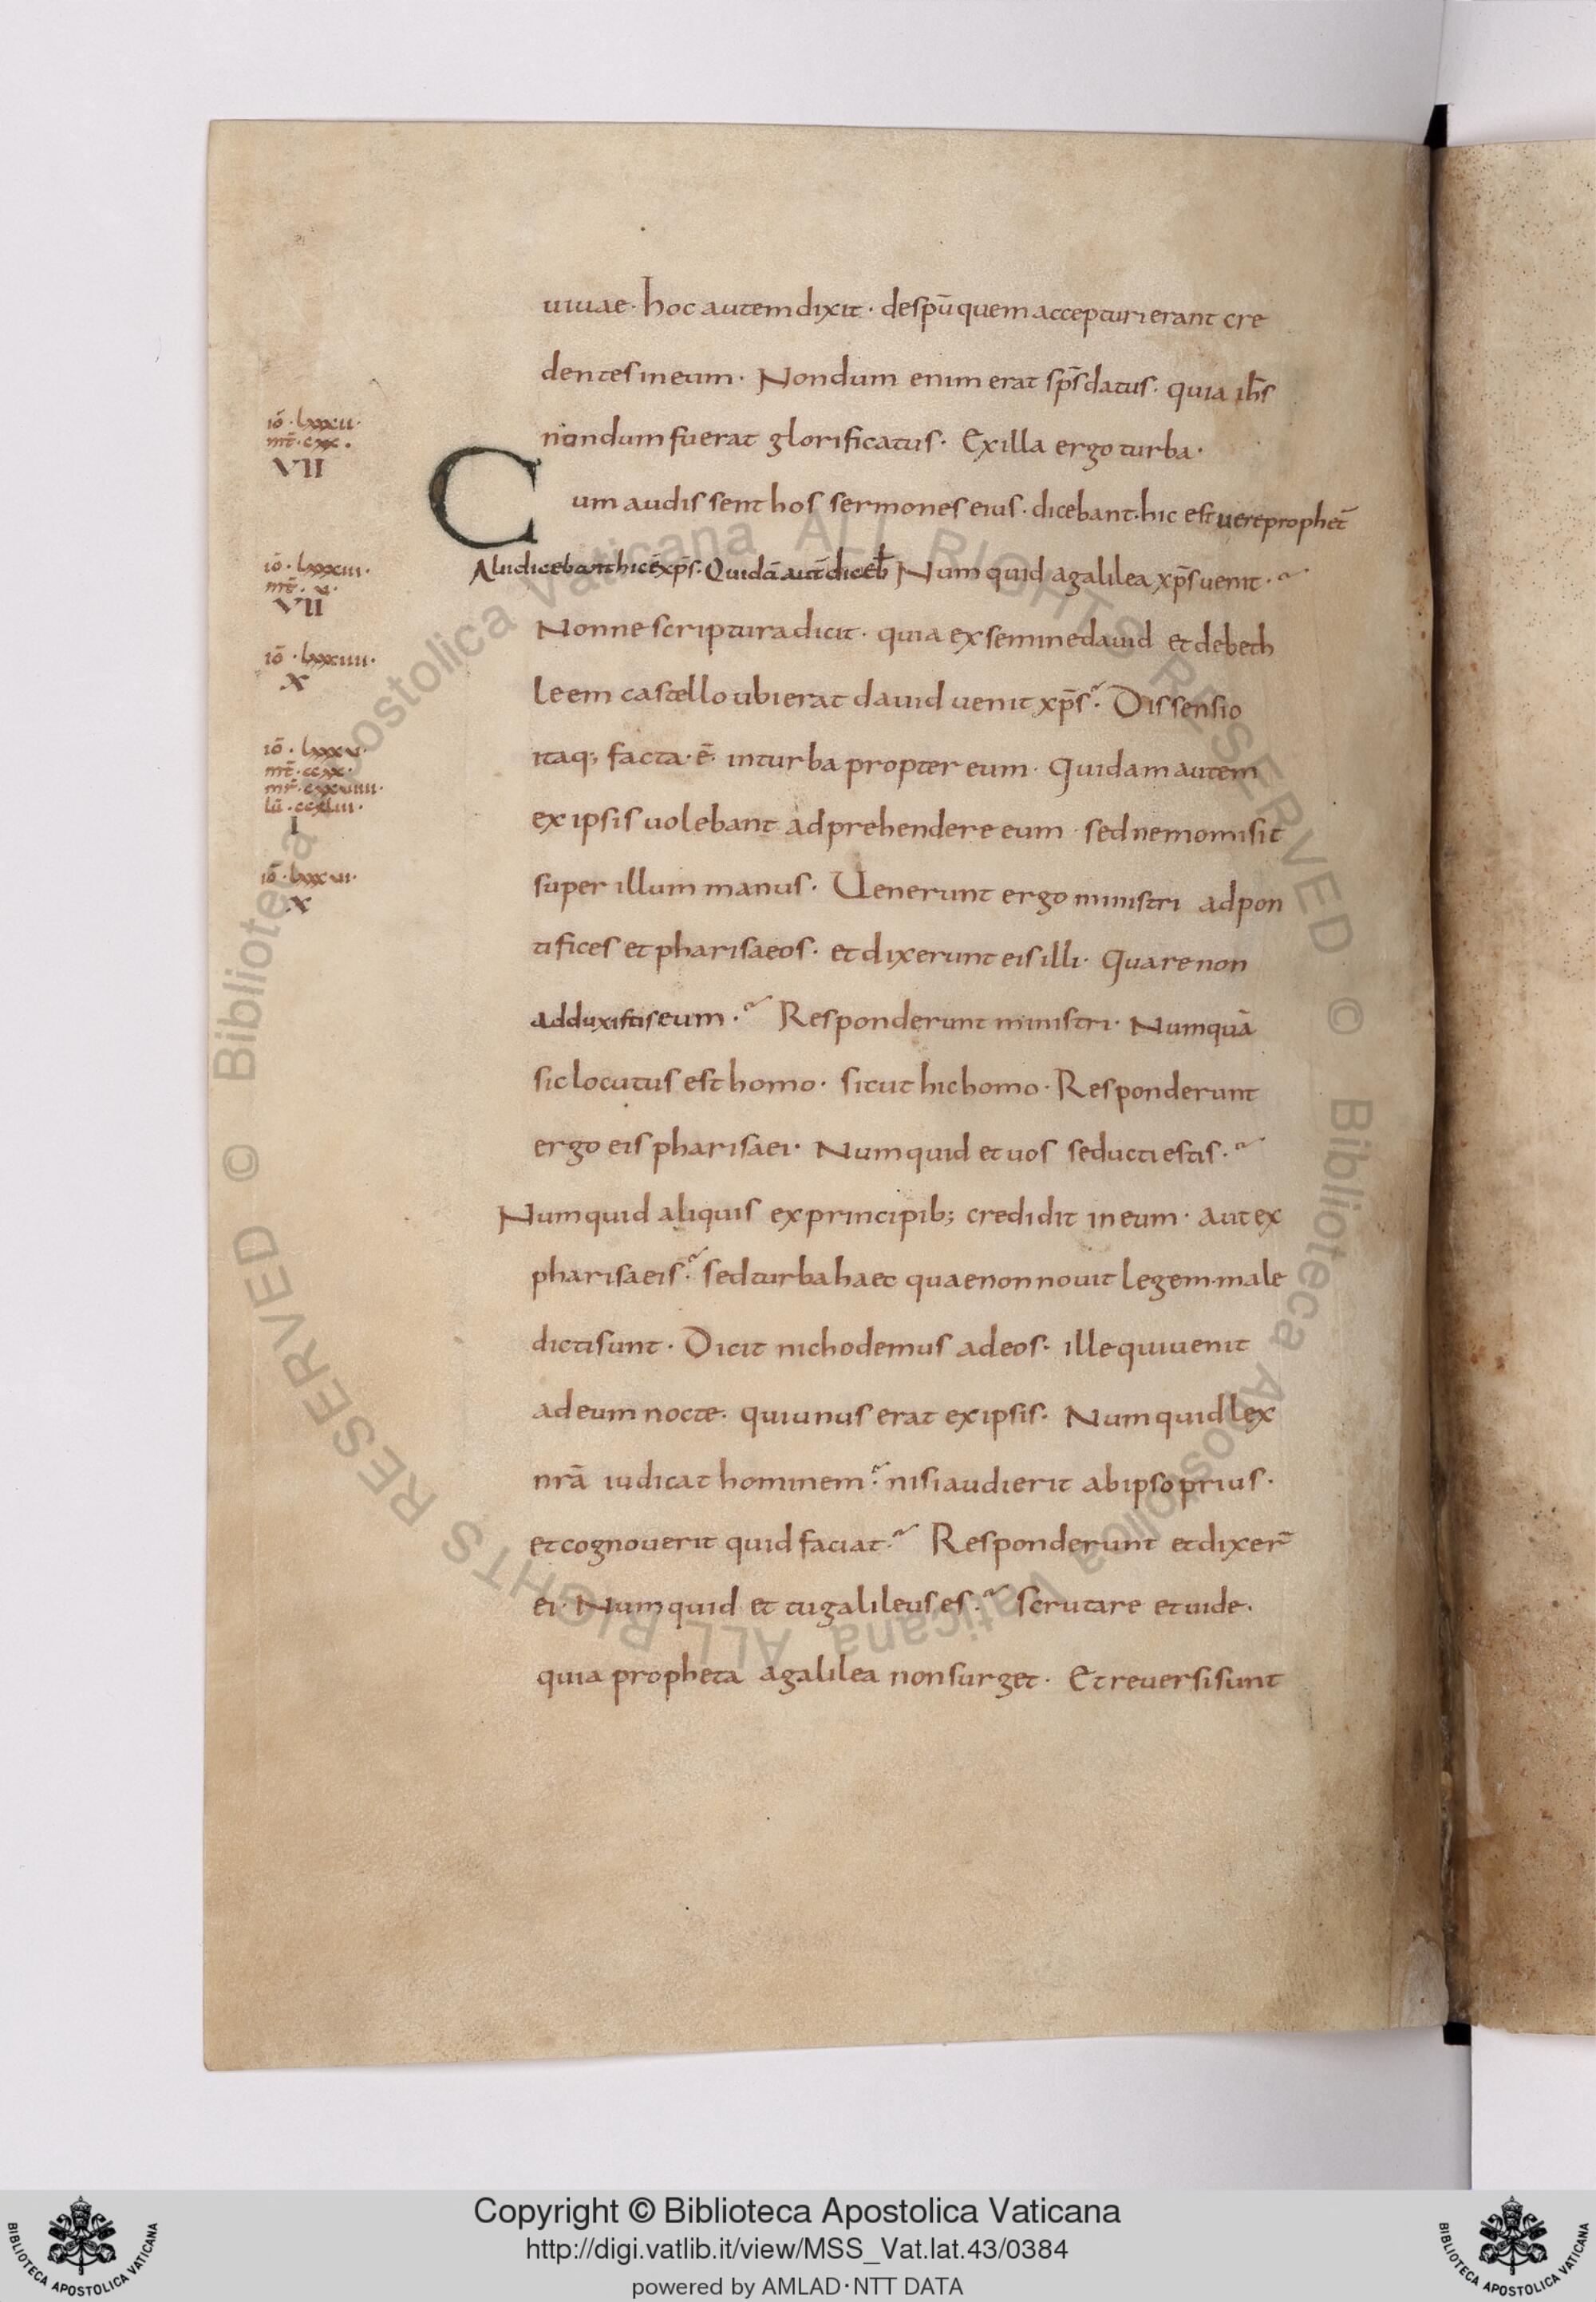 uiuae · hoc autem dixit · de spū quem accepturi erant cre
dentes in eum · Nondum enim erat sps̄ datus · quia ihs̄
nondum fuerat glorificatus · Ex illa ergo turba ·
Cum audissent hos sermones eius · dicebant · hic est uere prophet̄
Alii dicebant hic ē xps̄ · Quidā autē diceb̄ Numquid a galilea xps̄ uenit ·
Nonne scriptura dicit · quia ex semine dauid et de beth
leem castello ubi erat dauid uenit xps̄ · Dissensio
itaq; facta · ē · in turba propter eum · Quidam autem
ex ipsis uolebant adprehendere eum · sed nemo misit
super illum manus · Uenerunt ergo ministri ad pon
tifices et pharisaeos · et dixerunt eis illi · Quare non
adduxistis eum · Responderunt ministri · Numquā
sic locutus est homo · sicut hic homo · Responderunt
ergo eis pharisaei · Numquid et uos seducti estis ·
Numquid aliquis ex principib; credidit in eum · aut ex
pharisaeis · sed turba haec quae non nouit legem · male
dicti sunt · Dicit nichodemus ad eos · ille qui uenit
ad eum nocte · qui unus erat ex ipsis · Numquid lex
nrā iudicat hominem · nisi audierit ab ipso prius ·
et cognouerit quid faciat · Responderunt et dixer̄
ei · Numquid et tu galileus es · scrutare et uide ·
quia propheta a galilea non surget · Et reuersi sunt
iō · lxxxii ·
mt̄ · cxx ·
VII
iō · lxxxiii ·
mt̄ · v ·
VII
iō · lxxxiiii ·
X
iō · lxxxv ·
mt̄ · ccxx ·
mr̄ · cxxuiiii ·
lū · ccxlii ·
I
iō · lxxxvi ·
X
© Biblioteca Apostolica Vaticana ALL RIGHTS RESERVED © Biblioteca Apostolica Vaticana ALL RIGHTS RESERVED
Copyright © Biblioteca Apostolica Vaticana
http://digi.vatlib.it/view/MSS_Vat.lat.43/0384
powered by AMLAD·NTT DATA
BIBLIOTECA APOSTOLICA VATICANA
BIBLIOTECA APOSTOLICA VATICANA